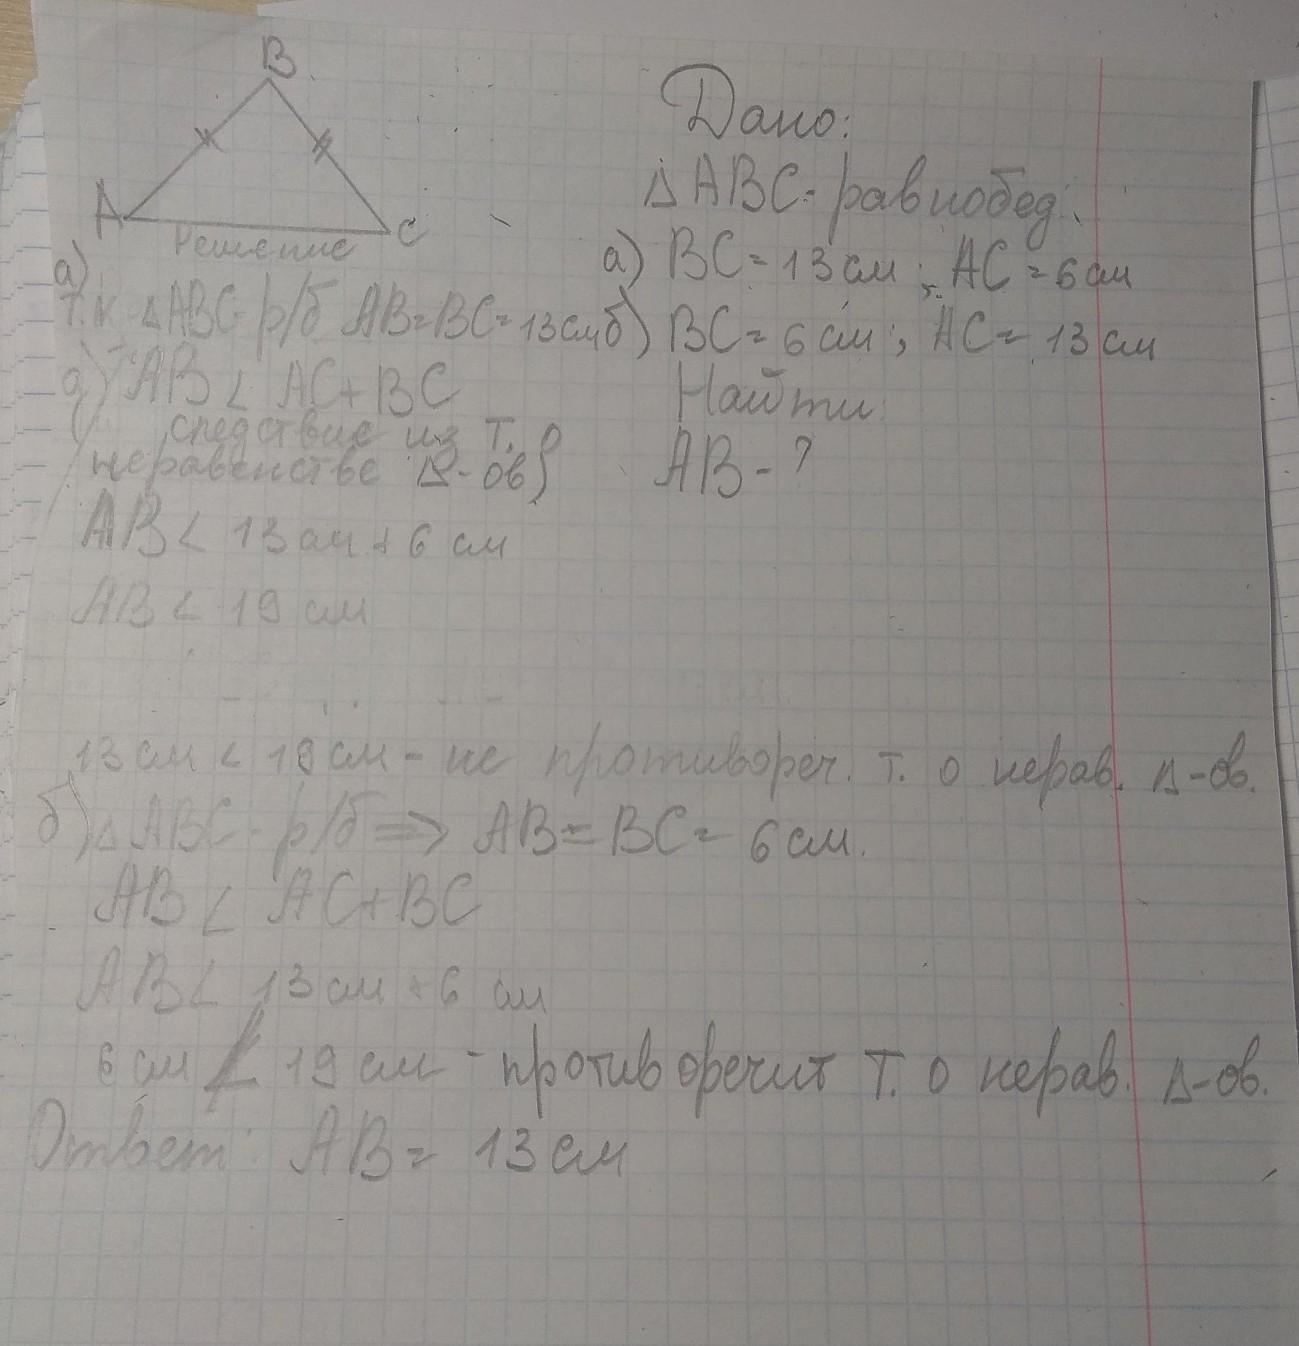 B
A
C
Дано:
△ABC - равнобед.
а) BC = 13 см ; AC = 6 см
б) BC = 6 см ; AC = 13 см
Найти:
AB - ?
Решение
а)
т.к △ABC р/б AB = BC = 13 см
AB < AC + BC
следствие из т. о
неравенстве △-ов)
AB < 13 см + 6 см
AB < 19 см
13 см < 19 см - не противореч. т. о нерав. △-ов.
б) △ABC - р/б => AB = BC = 6 см.
AB < AC + BC
AB < 13 см + 6 см
6 см < 19 см - противоречит т. о нерав. △-ов.
Ответ: AB = 13 см